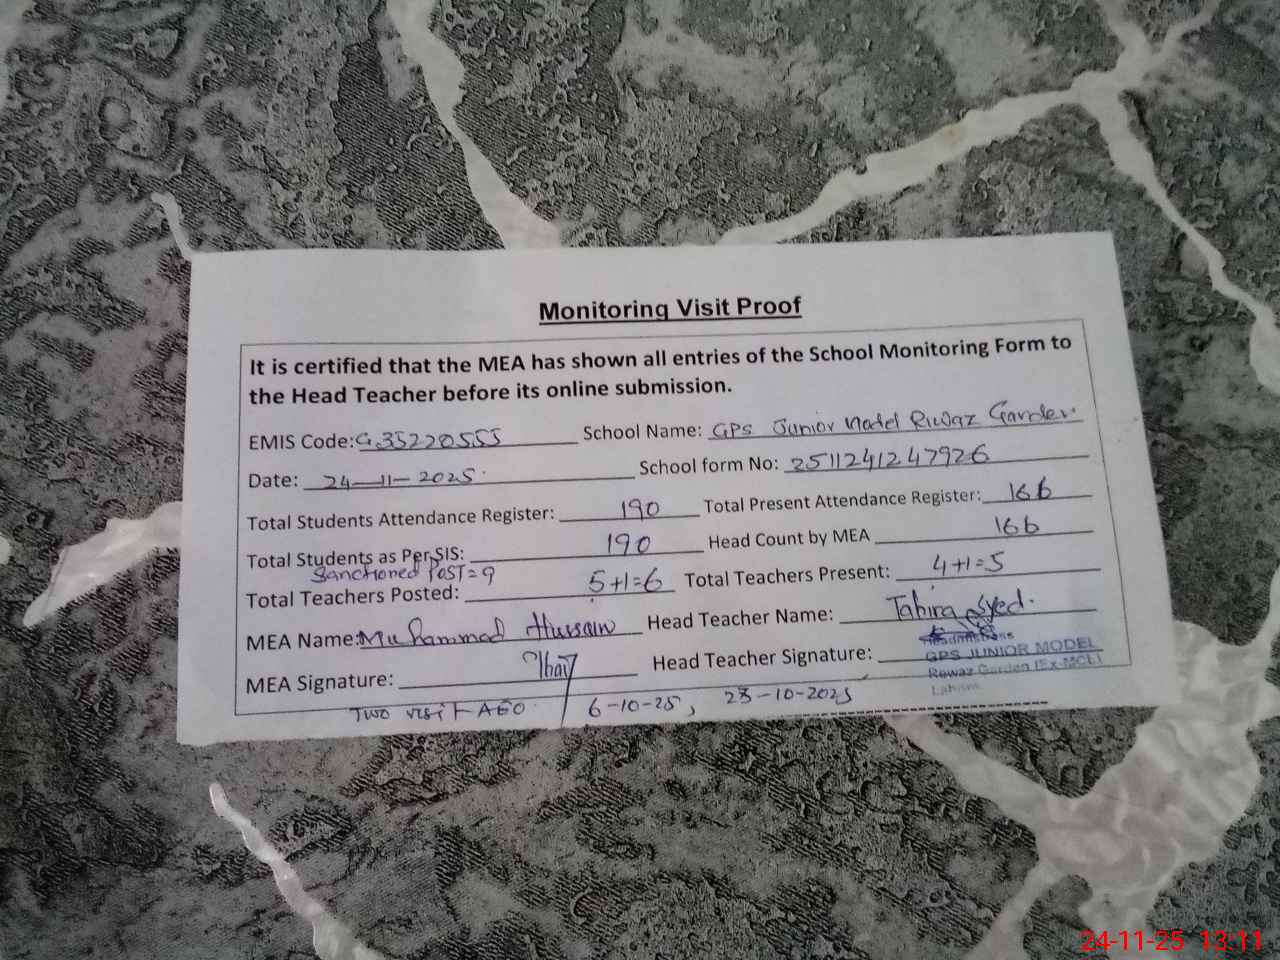 Monitoring Visit Proof
It is certified that the MEA has shown all entries of the School Monitoring Form to
the Head Teacher before its online submission.
EMIS Code: G.35220555 School Name: GPS Junior Model Riwaz Garden.
Date: 24-11-2025. School form No: 2511241247926
Total Students Attendance Register: 190 Total Present Attendance Register: 166
Total Students as Per SIS: 190 Head Count by MEA 166
Sanctioned Post=9
Total Teachers Posted: 5+1=6 Total Teachers Present: 4+1=5
MEA Name: Muhammad Hussain Head Teacher Name: Tahira Syed.
MEA Signature: Head Teacher Signature:
Headmistress
GPS JUNIOR MODEL
Rewaz Garden (Ex-MCL)
Lahore
Two visit AEO 6-10-25, 23-10-2025
24-11-25 13:11